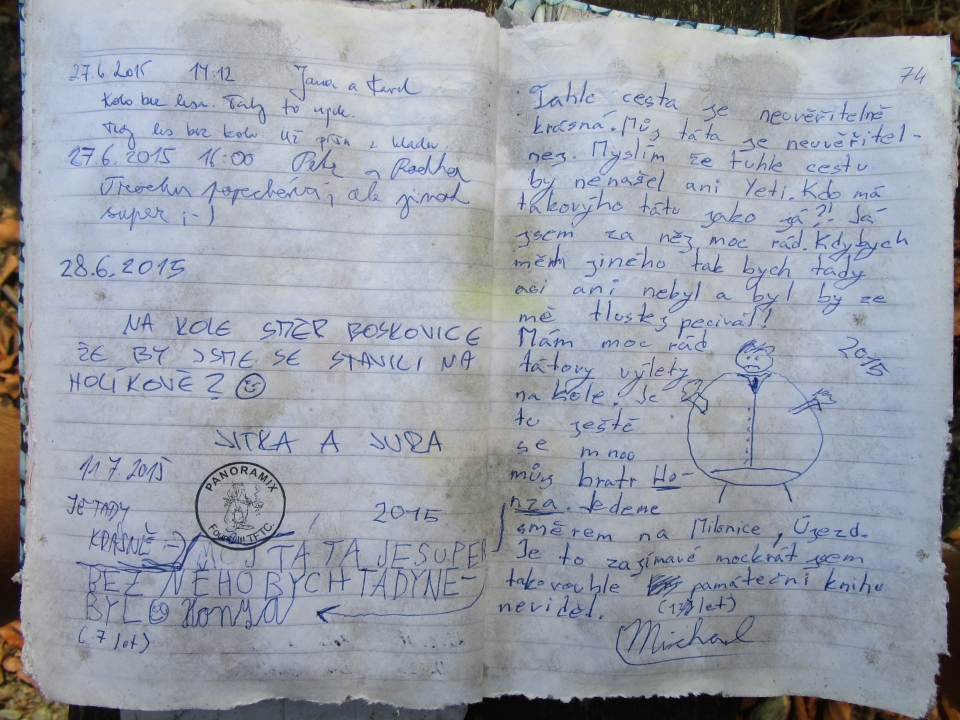 27.6.2015 14:12 Jana a Karel
Kolo bez lesa. Tady to ujede.
Tady les bez kola. Už
27.6.2015 16:00 Petr a Radka
Trochu popechèná, ale jinak
super ;-)
28.6.2015
NA KOLE SMĚR BOSKOVICE
ŽE BY JSME SE STAVILI NA
HOLÍKOVĚ? ☺
JITKA A JURA
11.7.2015
JE TADY
KRÁSNĚ :-)
PANORAMIX
Found it! TFTC.
2015
MŮJ TÁTA JE SUPER
BEZ NĚHO BYCH TADY NE-
BYL ☺ Honza
(7 let)
74
Tahle cesta je neuvěřitelně
krásná. Můj táta je neuvěřitel-
nej. Myslím že tuhle cestu
by nenašel ani Yeti. Kdo má
takovýho tátu jako já?! Já
jsem za něj moc rád. Kdybych
měl jiného tak bych tady
asi ani nebyl a byl by ze
mě tlustej pecivál!
Mám moc rád
tátovy výlety
na kole. Je
tu ještě
se mnou
můj bratr Ho-
nza. Jedeme
směrem na Milonice, Újezd.
Je to zajímavé mockrát jsem
takovouhle památeční knihu
neviděl. (12 let)
Michael
2015